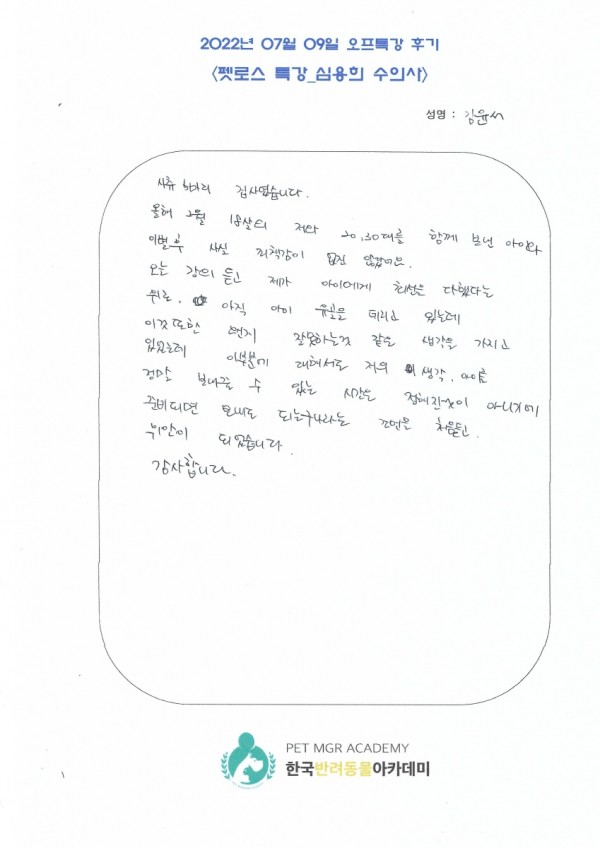 2022년 07월 09일 오프특강 후기
<펫로스 특강_심용희 수의사>
성명 : 김윤서
감사했습니다.
올해 2월 18살의 저와 20,30대를 함께 보낸 아이와
이별 후 사실 죄책감이 없진 않았어요.
오늘 강의 듣고 제가 아이에게 최선을 다했다는
위로, 아직 아이 유골을 데리고 있는데
이것 또한 왠지 잘못하는것 같은 생각을 가지고
있었는데 이부분에 대해서도 저의 생각, 마음
정말 보내줄 수 있는 시간은 정해진것이 아니기에
준비되면 보내도 되는구나라는 조언을 처음듣고
위안이 되었습니다.
감사합니다.
PET MGR ACADEMY
한국반려동물아카데미